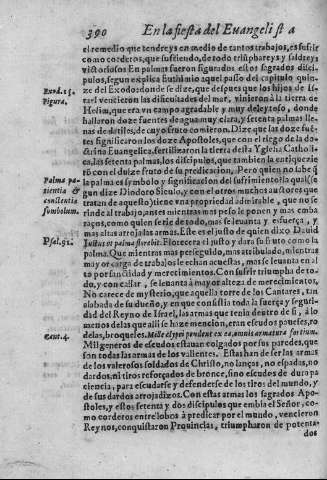 390 En la fiesta del Euangelist a
el remedio que tendreys en medio de tantos trabajos, es sufrir
como corderos, que sufriendo, de todo triũphareys y saldreys
victoriosos En palmas fueron figurados estos sagrados disci-
pulos, segun explica Euthimio aquel passo del capitulo quin-
Exod. 15. ze del Exodo: donde se dize, que despues que los hijos de Is-
Figura. rael vencieron las dificultades del mar, vinieron à la tierra de
Helim, que era vn campo agradable y muy deleytoso, donde
hallaron doze fuentes de agua muy clara, y setenta palmas lle-
nas de datiles, de cuyo fruto comieron. Dize que las doze fuẽ-
tes significaron los doze Apostoles, que con el riego de la do-
ctrina Euangelica, fertilizaron la tierra desta Yglesia Catholi-
ca. las setenta palmas, los discipulos, que tambien la enriquezie
rõ con el dulze fruto de su predicacion. Pero quien no sabe q̃
Palma pa- la palma es symbolo y significacion del sufrimiento? la qual (se
tientia & gun dize Diodoro Siculo, y con el otros muchos auctores que
constantia tratan de aquesto) tiene vna propriedad admirable, que no se
symbolum. rinde al trabajo, antes mientras mas peso le ponen y mas emba
raços, como quien serie de todo, mas se leuanta y esfuerça, y
mas altas arroja las armas. Este es el justo de quien dixo Dauid
Psal. 91. Iustus vt palma florebit. Florecera el justo y dara su fruto como la
palma. Que mientras mas perseguido, mas atribulado, mientras
mayor carga de trabajos le echan acuestas, mas se leuanta en al
to por sanctidad y merecimientos. Con sufrir triumpha de to-
do, y con callar, se leuanta à mayor alteza de merecimientos.
No carece de mysterio, que aquella torre de los Cantares, tan
alabada de su dueño, y en que consistia toda la fuerça y seguri-
dad del Reyno de Israel, las armas que tenia dentro de si, à lo
menos de las que alli se haze mencion, eran escudos paueses, ro
Cant. 4. delas, broqueles. Mille clypei pendent ex ea, omnis armatura fortium.
Mil generos de escudos estauan colgados por sus paredes, que
son todas las armas de los valientes. Estas han de ser las armas
de los valerosos soldados de Christo, no lanças, no espadas, no
dardos, ni tiros reforçados de bronce, sino escudos de dura pa
ciencia, para escudarse y defenderse de los tiros del mundo, y
de sus dardos arrojadizos. Con estas armas los sagrados Apo-
stoles, y estos setenta y dos discipulos que embia el Señor, co-
mo corderos entre lobos à predicar por el mundo, vencieron
Reynos, conquistaron Prouincias, triumpharon de potenta-
dos